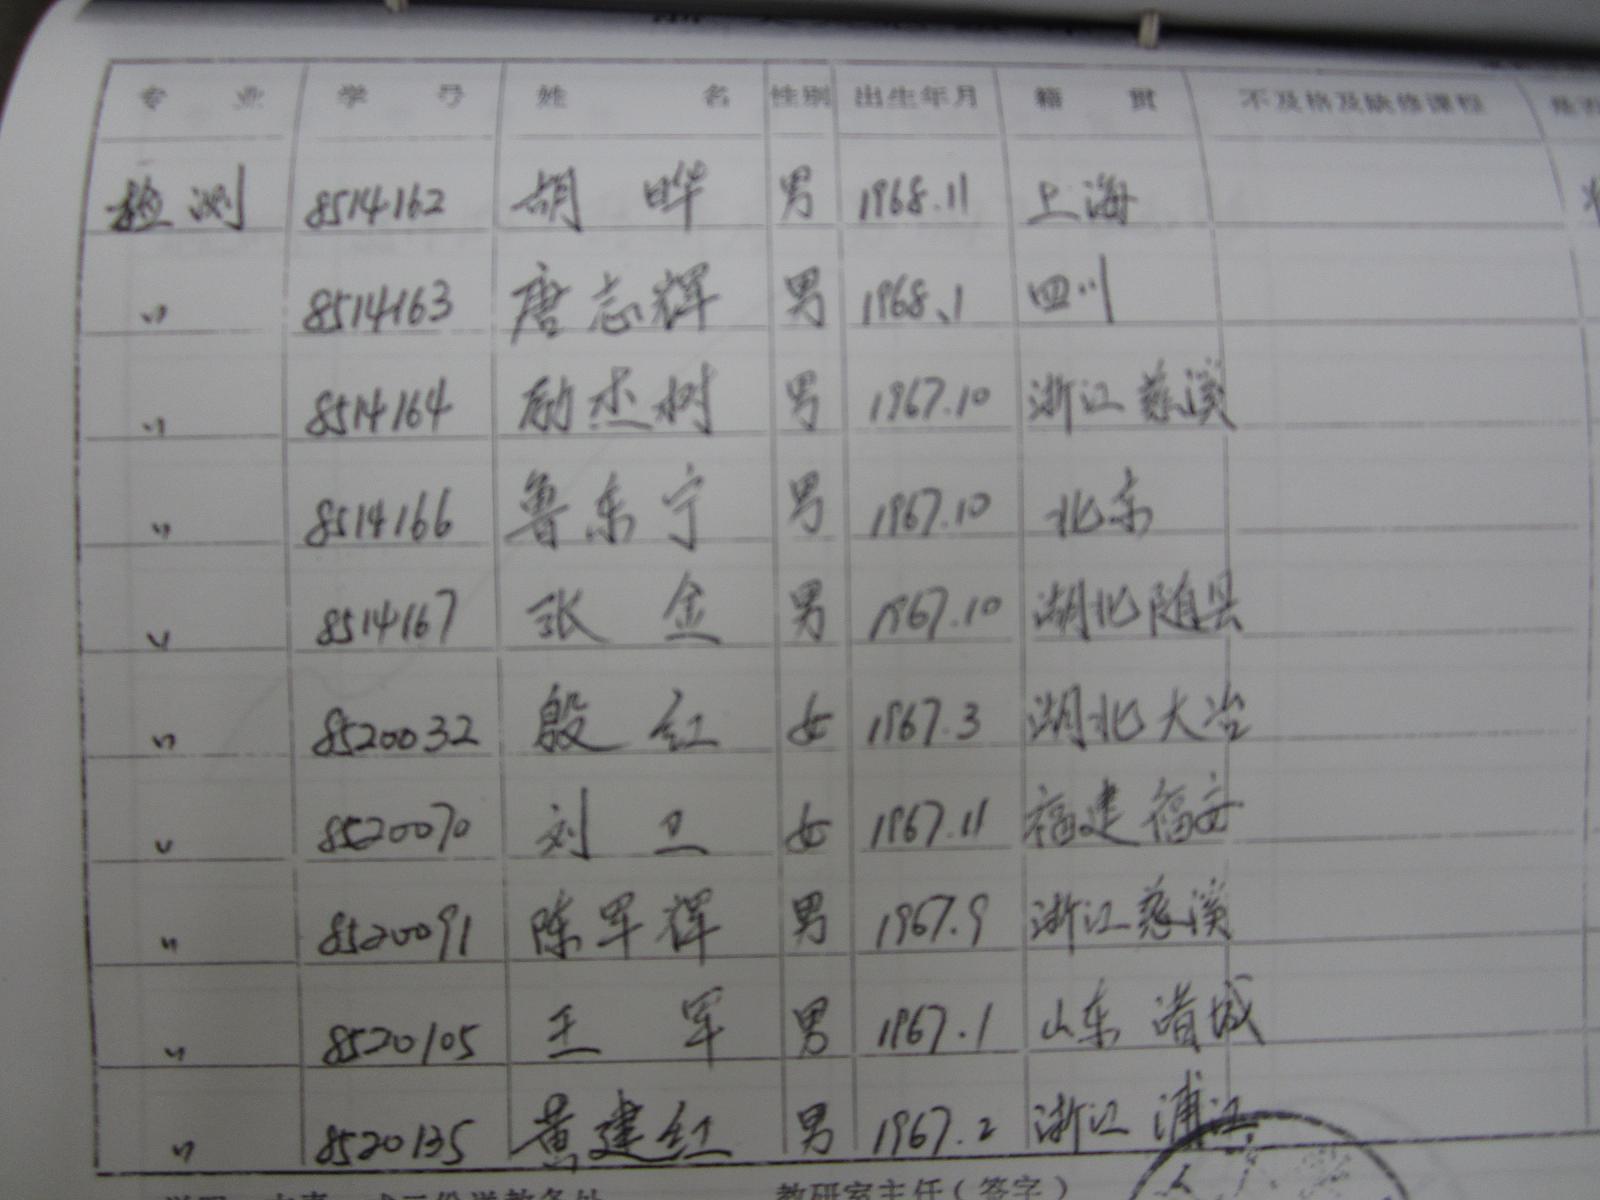 专业 学号 姓名 性别 出生年月 籍贯 不及格及缺修课程 是否
检测 8514162 胡晔 男 1968.11 上海
〃 8514163 唐志辉 男 1968.1 四川
〃 8514164 励杰树 男 1967.10 浙江慈溪
〃 8514166 鲁东宁 男 1967.10 北京
〃 8514167 张金 男 1967.10 湖北随县
〃 8520032 殷红 女 1967.3 湖北大冶
〃 8520070 刘卫 女 1967.11 福建福安
〃 8520091 陈军辉 男 1967.9 浙江慈溪
〃 8520105 王军 男 1967.1 山东诸城
〃 8520135 黄建红 男 1967.2 浙江浦江
教研室主任(签字)